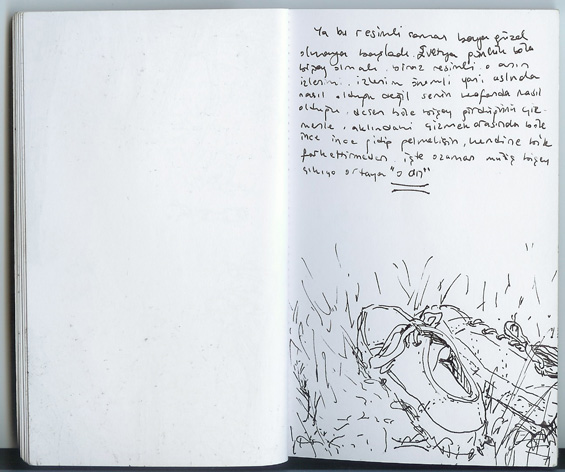 Ya bu resimli roman baya güzel
olmaya başladı. Evetya günlük böle
bişey olmalı. biraz resimli. o anın
izlerin.. izlerim önemli yani aslında
nasıl olduğu değil senin kafanda nasıl
olduğu. desen böle bişey gördüğünü çiz-
menle, aklındaki çizmek arasında böle
ince ince gidip gelmelisin, kendine bile
farkettirmeden. işte ozaman müthiş bişey
çıkıyo ortaya "o an"